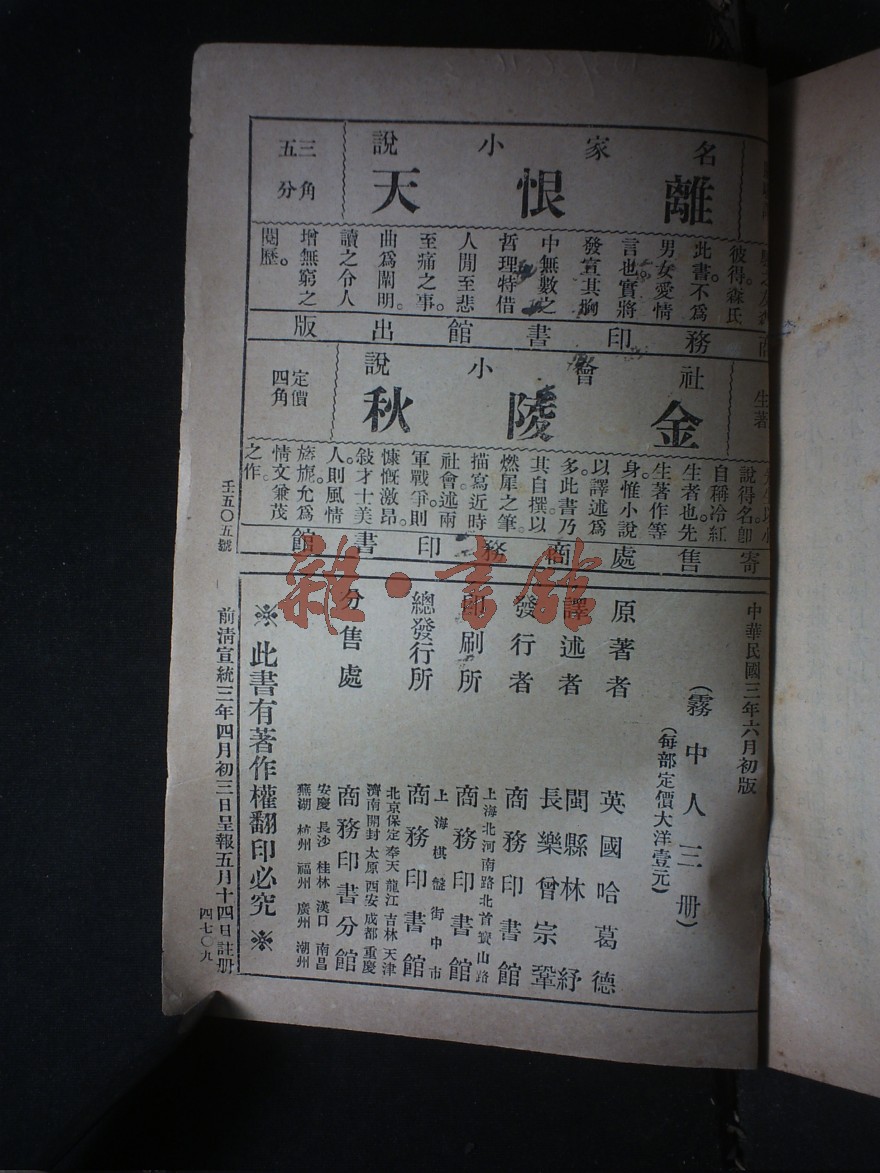 名家小說
離恨天
三角
五分
彼得森氏
此書不爲
男女愛情
言也實將
發宣其胸
中無數之
哲理特借
人間至悲
至痛之事。
曲爲闡明。
讀之令人
增無窮之
閱歷。
商務印書館出版
生著
社會小說
金陵秋
定價
四角
說得名卽
自稱冷紅
生者也先
生著作等
身惟小說
以譯述爲
多。此書乃
其自撰。以
燃犀之筆。
描寫近時
社會。述兩
軍戰爭。則
慷慨激昂。
敍才士美
人。則風情
旖旎。允爲
情文兼茂
之作。
寄售處商務印書館
壬五〇五號
中華民國三年六月初版
(霧中人三册)
(每部定價大洋壹元)
原著者 英國哈葛德
譯述者 閩縣林紓
長樂曾宗鞏
發行者 商務印書館
印刷所 上海北河南路北首寶山路
商務印書館
總發行所 上海棋盤街中市
商務印書館
分售處 北京保定奉天龍江吉林天津
濟南開封太原西安成都重慶
商務印書分館
安慶長沙桂林漢口南昌
蕪湖杭州福州廣州潮州
※此書有著作權翻印必究※
前清宣統三年四月初三日呈報五月十四日註册
四七〇九
雜·書館